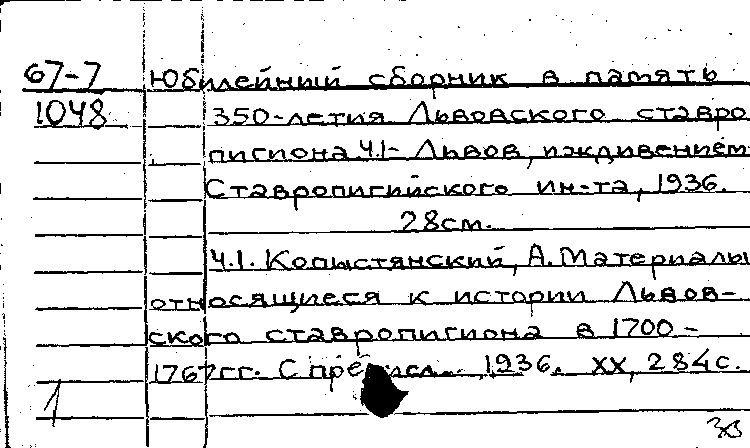 67-7 Юбилейный сборник в память
1048 350-летия Львовского ставро
пигиона. Ч.1- Львов, иждивением
Ставропигийского ин-та, 1936.
28см.
Ч.1. Копыстянский, А. Материалы
относящиеся к истории Львов-
ского ставропигиона в 1700-
1767гг. С предисл. 1936. XX, 284с.
1